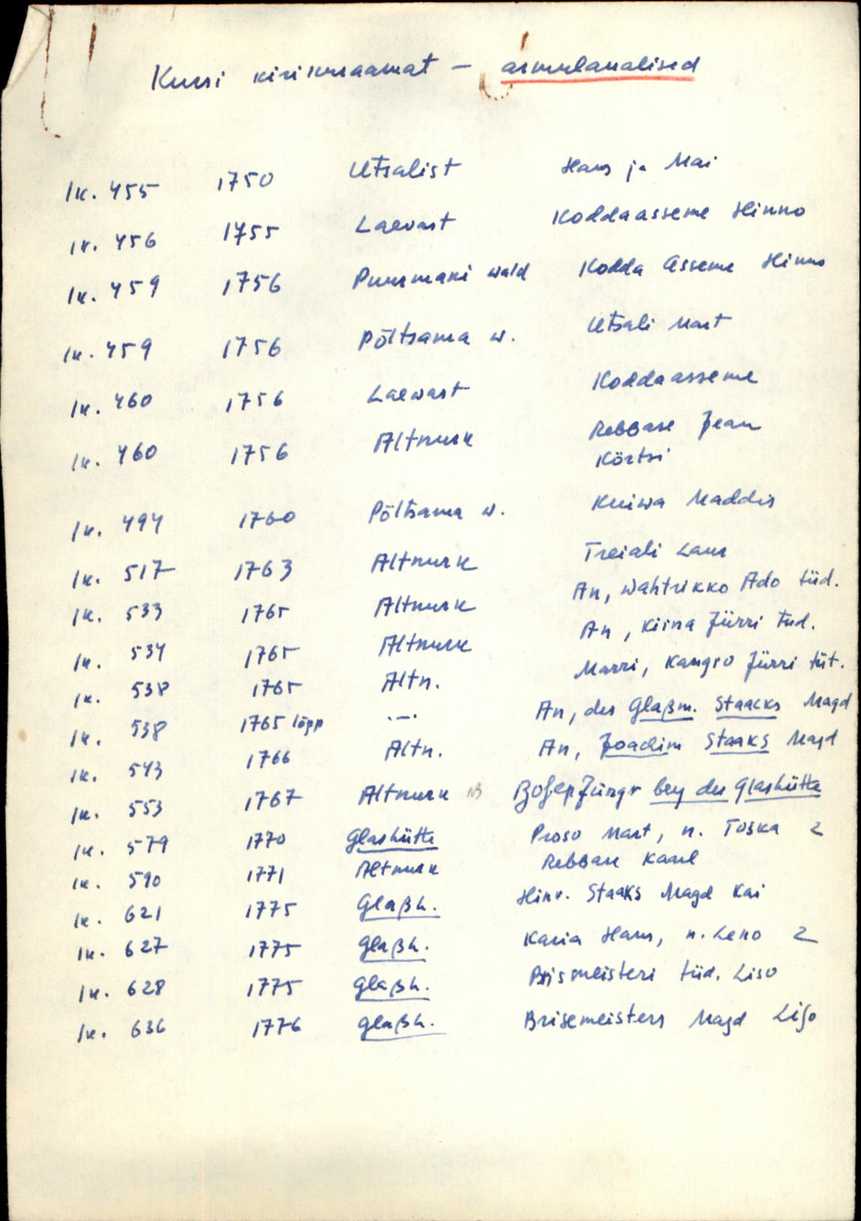 Kursi kirikuraamat – armulaualised
lk. 455 1750 Utsalist Hans ja Mai
lk. 456 1755 Laevast Koddaasseme Hinno
lk. 459 1756 Puurmani wald Kodda Asseme Hinno
lk. 459 1756 Põltsama w. Utsali Mart
lk. 460 1756 Laewast Koddaasseme
lk. 460 1756 Altnurk Rebbase Jean
Körtsi
lk. 494 1760 Põltsama w. Kuiwa Maddis
lk. 517 1763 Altnurk Treiali Laur
lk. 533 1765 Altnurk An, Wahtrikko Ado tüd.
lk. 534 1765 Altnurk An, Kiina Jürri tud.
lk. 538 1765 Altn. Marri, Kangro Jürri tüt.
lk. 538 1765 lõpp –.– An, des Glaßm. Staacks Magd
lk. 543 1766 Altn. An, Joachim Staaks Magd
lk. 553 1767 Altnurk bey der Glashütte
lk. 579 1770 Glashütte Proso Mart, n. Toska 2
lk. 590 1771 Altnurk Rebbase Kaarl
lk. 621 1775 Glaßh. Hinr. Staaks Magd Kai
lk. 627 1775 Glaßh. Karia Hans, n. Leno 2
lk. 628 1775 Glaßh. Prismeisteri tüd. Liso
lk. 636 1776 Glaßh. Brisemeisters Magd Liso